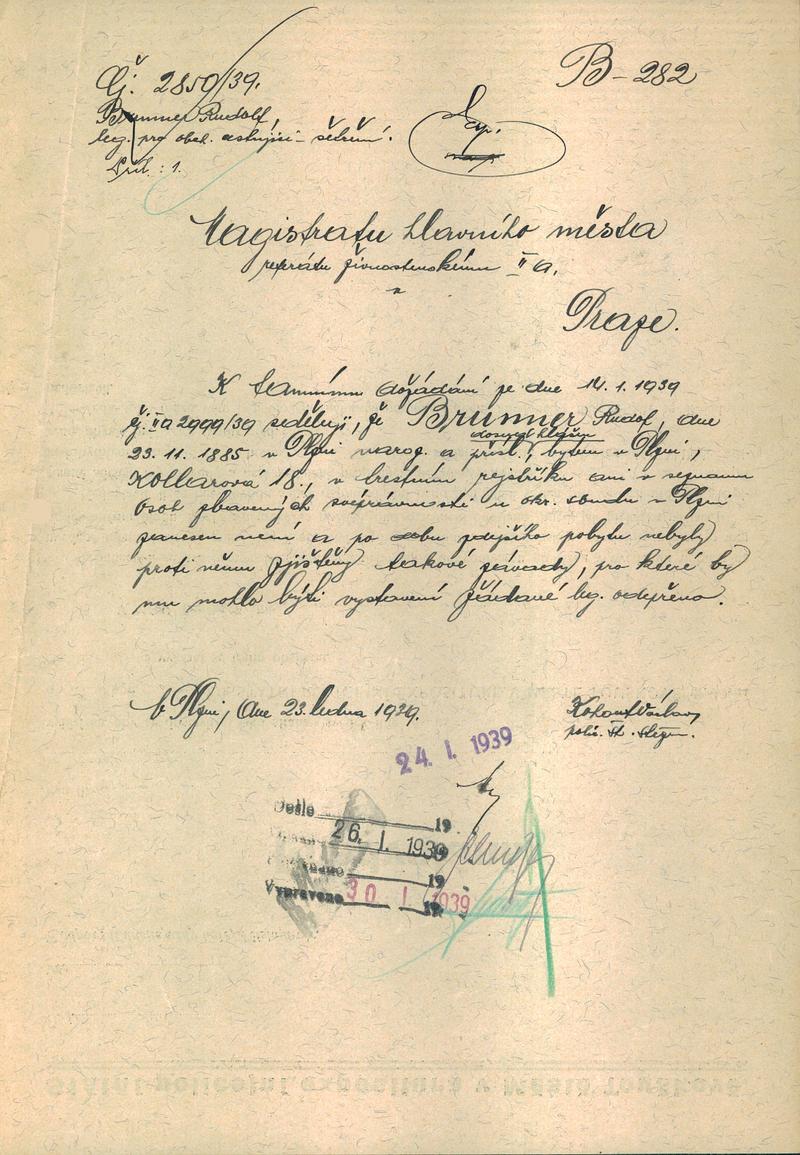 Čj. 2850/39.
B-282
Brunner Rudolf,
leg. pro obch. cestující - šetření.
Příl.: 1.
Magistrátu hlavního města
referátu živnostenskému II a,
v
Praze.
K tamnímu dožádání ze dne 14. 1. 1939
čj. II a 2999/39 sděluji, že Brunner Rudolf, dne
dosud hlášen
23. 11. 1885 v Plzni naroz. a přísl., bytem v Plzni,
Kollarová 18., v trestním rejstříku ani v seznamu
osob zbavených svéprávnosti u okr. soudu v Plzni
zanesen není a po dobu zdejšího pobytu nebyly
proti němu zjištěny takové závady, pro které by
mu mohlo býti vystavení žádané leg. odepřeno.
V Plzni, dne 23. ledna 1939.
Kohout Václav
polic. st.
24. I. 1939
Došlo 19
26. I. 1939
19
Vypraveno 30. I. 1939 19
Státní policejní expositura v Městě Touškově